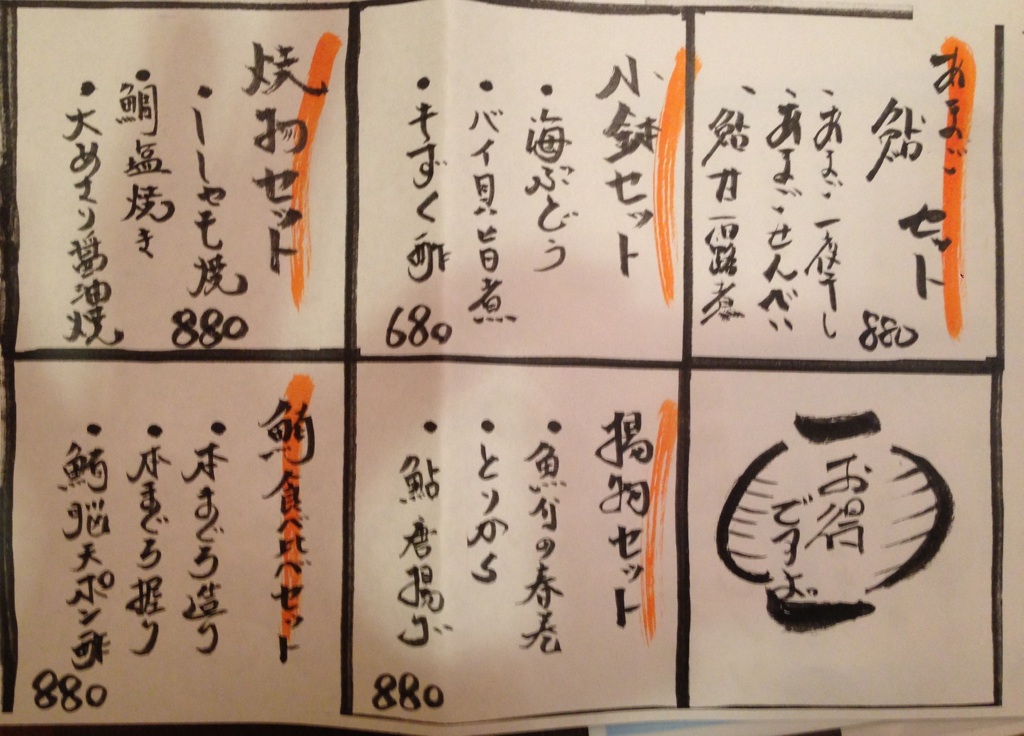 あまご
鮎 セット
、あまご一夜干し
、あまごせんべい
、鮎甘露煮
880
小鉢セット
・海ぶどう
・バイ貝旨煮
・もずく酢
680
焼物セット
・ししゃも焼
・鯛塩焼き
・大あさり醤油焼
880
お得
ですよ。
揚物セット
・魚介の春巻
・とりから
・鮎唐揚げ
880
鮪食べ比べセット
・本まぐろ造り
・本まぐろ握り
・鮪脳天ポン酢
880